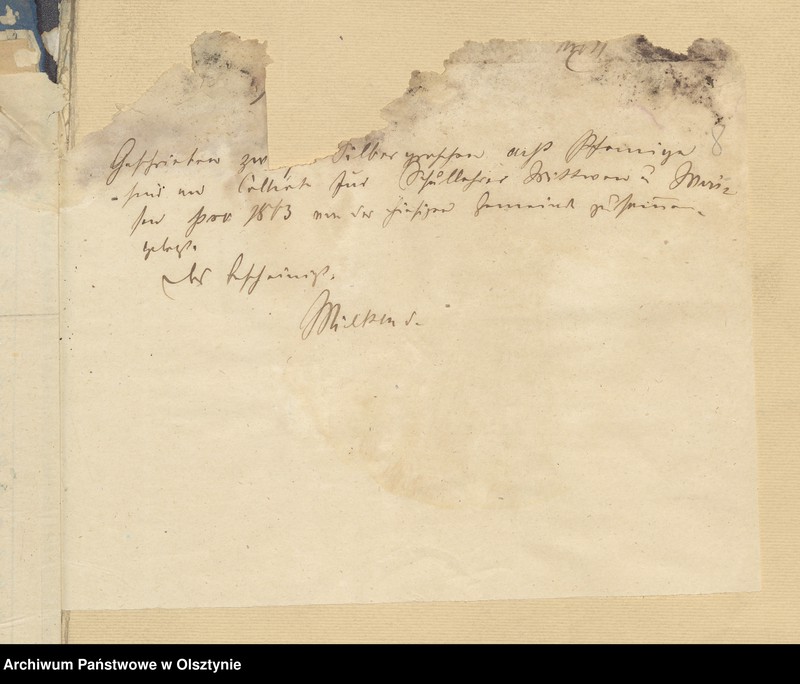 Geschrieben zw Silbergroschen acht Pfennige
sind an Collecte für Schullehrer Wittwen u Wai-
sen pro 1863 von der hiesigen Gemeinde zusammen-
gelegt.
Des bescheinigt.
Archiwum Państwowe w Olsztynie